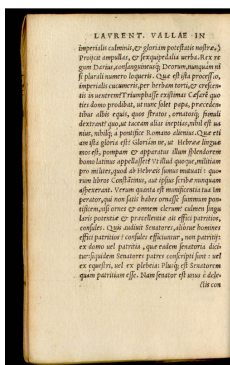 LAVRENT. VALLAE IN
imperialis culminis, & gloriam potestatis nostræ.)
Proijcit ampullas, & sexquipedalia uerba. Rex re
gum Darius, consanguineusq; Deorum, nunquam ni
si plurali numero loqueris. Quæ est ista processio,
imperialis cucumeris, per herbam torti, & crescen-
tis in uentrem? Triumphasse existimas Cæsarē quo
ties domo prodibat, ut nunc solet papa, præceden-
tibus albis equis, quos stratos, ornatosq; simuli
dextrant? quo, ut taceam alias ineptias, nihil est ua
nius, nihilq; à pontifice Romano alienius. Quæ eti
am ista gloria est? Gloriam ne, ut Hebrææ linguæ
mos est, pompam & apparatus illum splendorem
homo latinus appellasset? Et illud quoque, militiam
pro milites, quod ab Hebræis sumus mutuati: quo
rum libros Constātinus, aut ipsius scribæ nunquam
aspexerant. Verum quanta est munificentia tua im
perator, qui non satis habes ornasse summum pon-
tificem, nisi ornes & omnem clerum? culmen singu
laris potentiæ & præcellentiæ ais effici patricios,
consules. Quis audiuit Senatores, aliosue homines
effici patritios? consules efficiuntur, non patritij:
ex domo uel patritia, quæ eadem senatoria dici-
tur: siquidem Senatores patres conscripti sunt: uel
ex equestri, uel ex plebeia: Plusq; est Senatorem
quam patritium esse. Nam senator est unus è dele-
ctis con